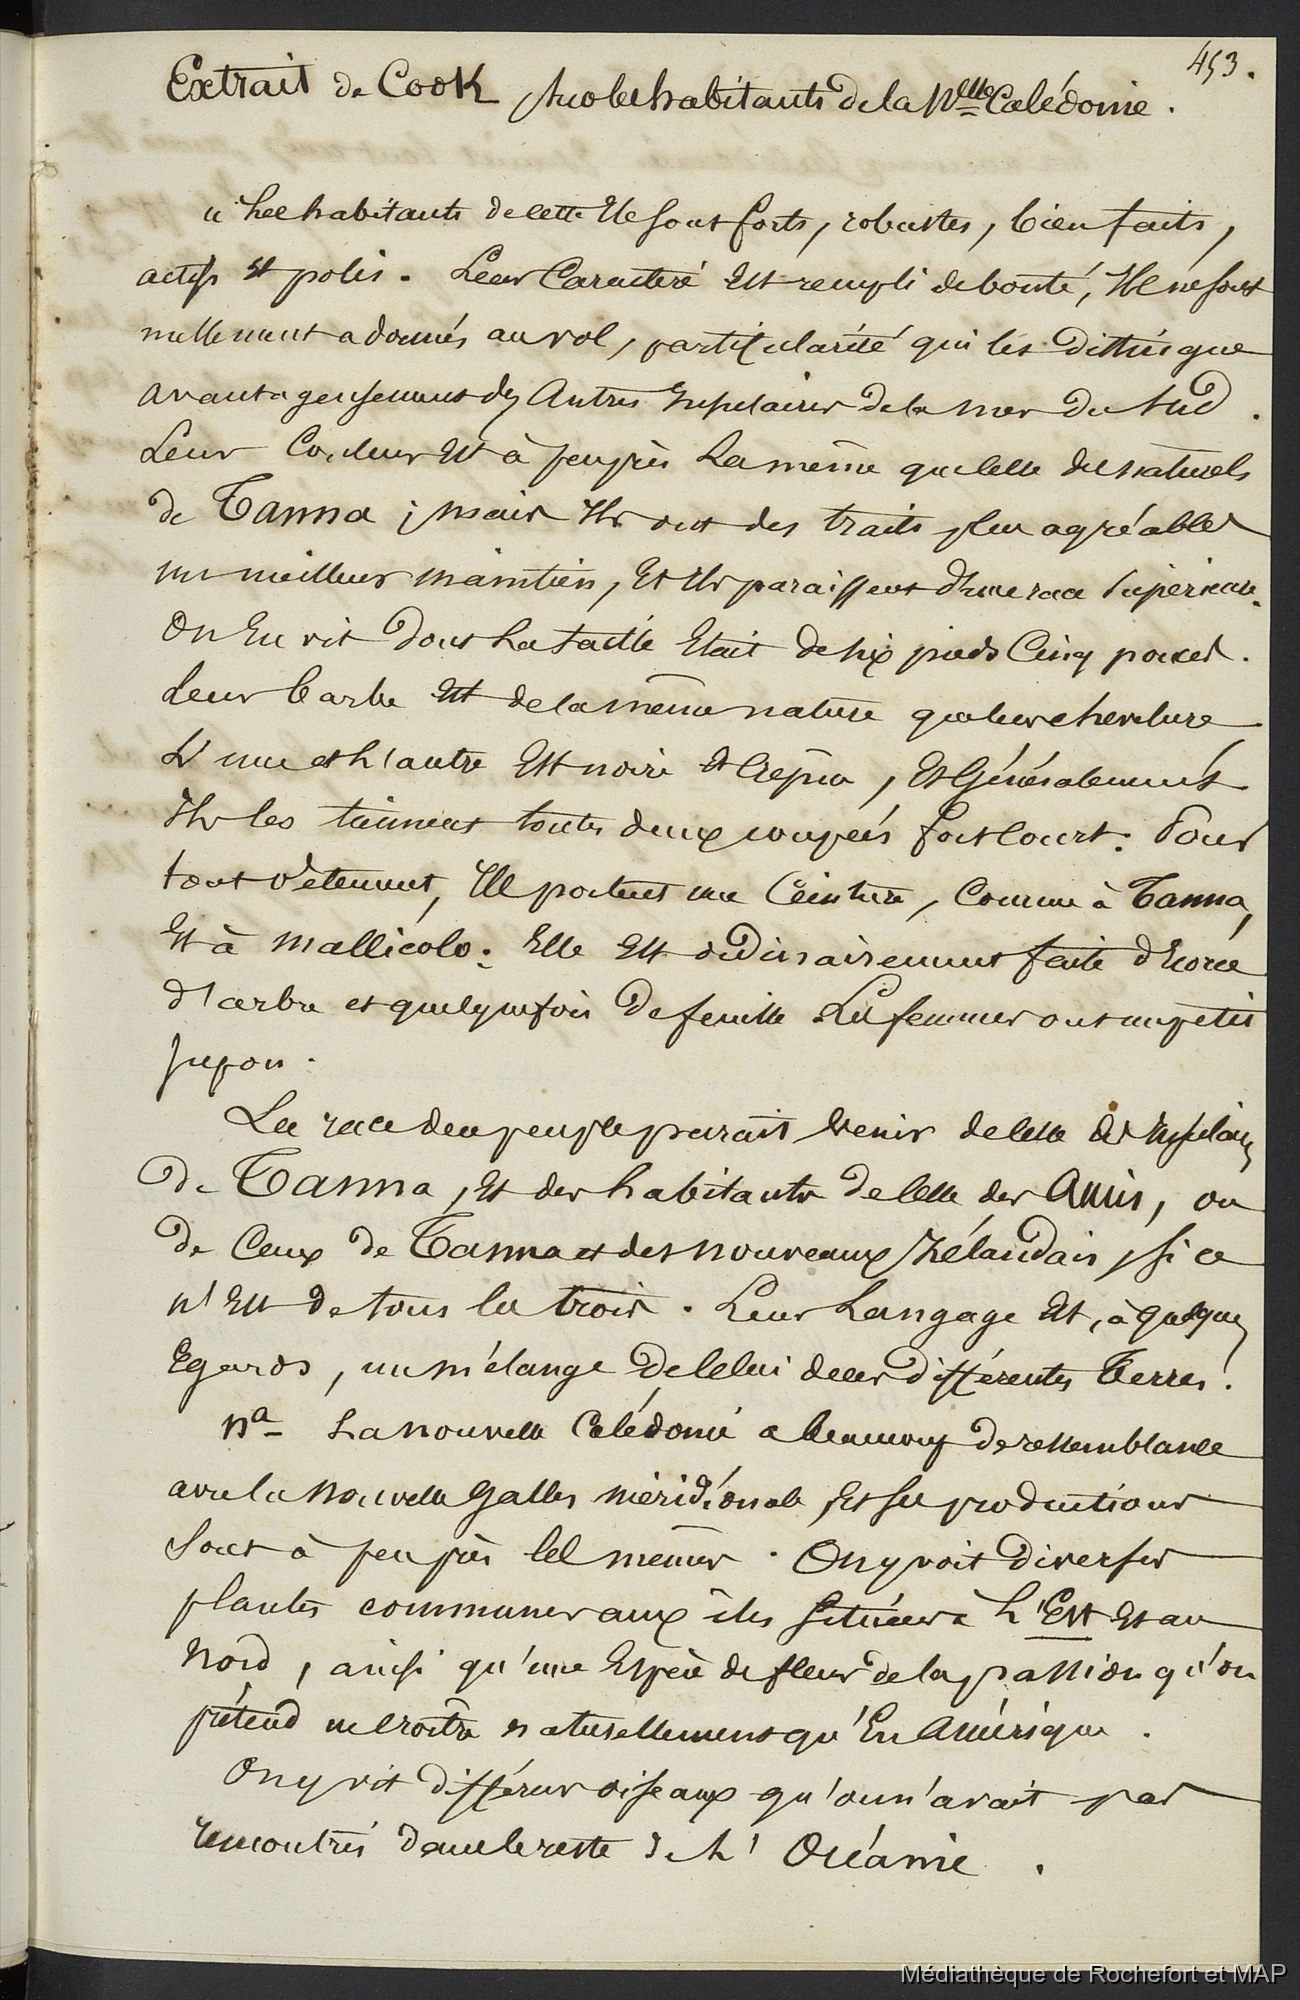 453.
Extrait de Cook sur les habitants de la Nelle Calédonie.
" Les habitants de cette Ile sont forts, robustes, bien faits,
actifs et polis. Leur Caractère est rempli de bonté, Ils ne sont
nullement adonnés au vol, particularité qui les distingue
avantageusement des Autres Insulaires de la mer du Sud.
Leur Couleur est à peu près la même que celle des naturels
de Tanna ; mais Ils ont des traits plus agréables
un meilleur maintien, Et Ils paraissent d'une race supérieure.
On En vit dont la taille Etait de six pieds Cinq pouces.
Leur barbe est de la même nature que leur chevelure
L'une et l'autre Est noire et crépue, Et Généralement
Ils les tiennent toutes deux coupées fort court. Pour
tout vêtement, Ils portent une Ceinture, comme à Tanna,
Et à Mallicolo. Elle Est ordinairement faite d'Ecorce
d'arbre et quelquefois de feuille Les femmes ont un petit
jupon.
La race de ce peuple parait venir de celle des Insulaires
de Tanna, Et des habitants de celle des Amis, ou
de Ceux de Tanna et des nouveaux Zélandais, si ce
n'Est de tous les trois. Leur Langage Est, à quelques
Egards, un mélange de celui de ces différentes Terres.
Na La nouvelle Calédonie a beaucoup de ressemblance
avec la nouvelle Galles méridionale, Et ses productions
sont à peu près les mêmes. On y voit diverses
plantes communes aux iles situées à l'Est Et au
Nord, ainsi qu'une Espèce de fleur de la passion qu'on
prétend ne croître naturellement qu'En Amérique.
On y vit différens oiseaux qu'on n'avait pas
rencontrés dans le reste de l'Océanie.
Médiathèque de Rochefort et MAP